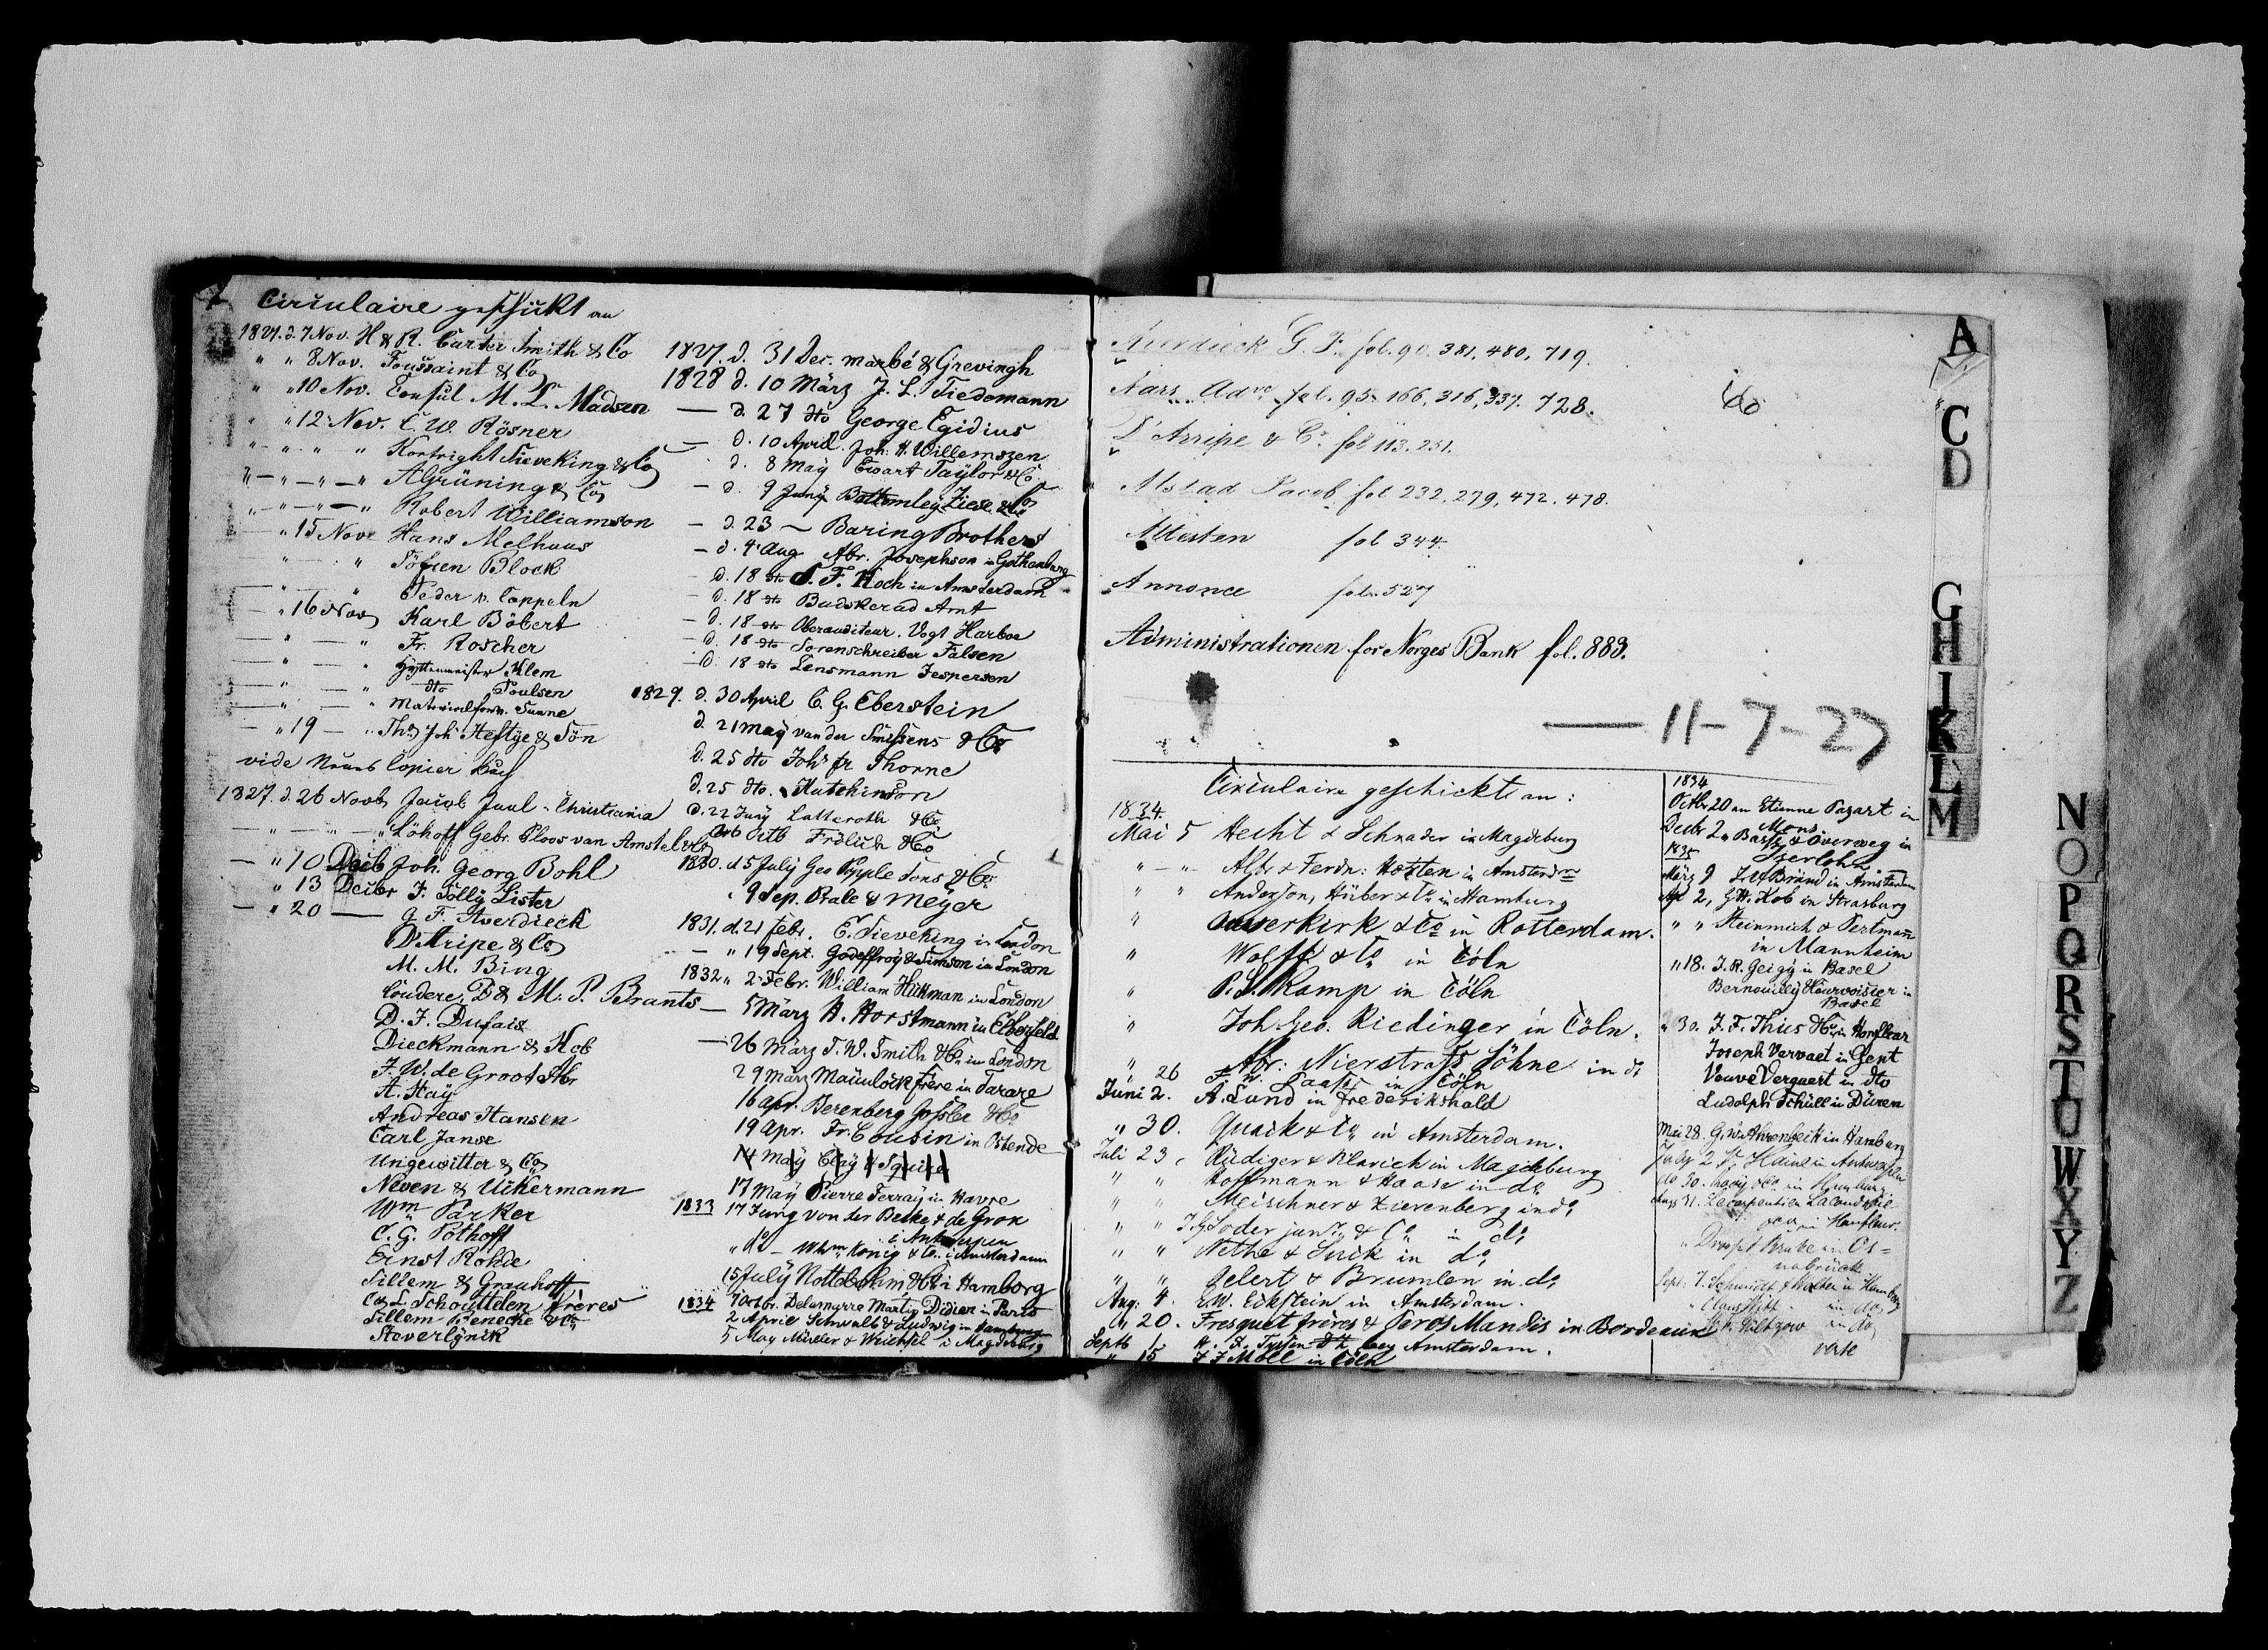 Circulaire geschickt an
1827. d. 7 Nov. H & R. Carter Smith & Co
" " 8 Nov. Toussaint & Co
" " 10 Nov. Consul M. L. Madsen
" " 12 Nov. C. W. Rösner
" - " - " " Kortright Sieveking & Co
" - " - " - " A Grüning & Co
" - " - " Robert Williamson
— " 15 Nov Hans Melhuus
" — " Sören Block
— " — " Peder v. Cappeln
— " 16 Nov Karl Böbert
— " — " Fr. Roscher
— " — " Hÿttenmeister Klem
— " — " dto Poulsen
— " — " Materialforv. Sunne
— " 19 — " Ths Joh Heftÿe & Sön
vide Neues Copier Buch
1827. d. 26 Novb Jacob Juul - Christiania
— " — " — " Löhoff Gebr. Ploos van Amstel & Co
— " 10 Decb Joh. Georg Bohl
" 13 Decbr J. Sölly Lister
— " 20 — G F. Averdieck
D'Aripe & Co
M. M. Bing
Coudere, D & M. P. Brants
D. F. Dufais
Dieckmann & Kob
J. W. de Groot Abr
A. Haÿ
Andreas Hansen
Carl Janse
Ungewitter & Co
Neven & Uckermann
Wm Parker
C. G. Pothoff
Ernst Rohde
Sillem & Grauhoff
C & L. Schouttelen Frères
Sillem Benecke & Co
Steverlÿnik
1827. d. 31 Dec. Marbé & Grevingh
1828 d. 10 März J. L. Tiedemann
— d. 27 dto George Egidius
— d. 10 April Joh. H. Willemszen
d. 8 Maÿ Ewart Taÿlor & Co
— d. 9 Junÿ Bottomleÿ Ziese & Co
— d. 23 — Baring Brothers
— d. 4 Aug Abr. Josephson in Gothenburg
d. 18 dto S. F. Koch in Amsterdam
— d. 18 dto Budskerad Amt
— d. 18 dto Oberauditeur. Vogt Harboe
— d. 18 dto Sorenschreiber Falsen
— d. 18 dto Lensmann Jespersen
1829. d. 30 April C. G. Eberstein
d. 21 Maÿ van der Smissens & Co
d. 25 dto Johs fr Thorne
d. 25 dto. Hutchinson
d. 22 Junÿ Lutteroth & Co
Octb Frölich & Co
1830. d 5 Julÿ Geo Pÿple Sons & Co
" 9 Sep. Rale & Meÿer
1831. d. 21 febr. E. Sieveking in London
— " 19 Sept. Godeffroÿ & Simson in London
1832 " 2 Febr. William Hickman in London
— 5 März H. Horstmann in Elberfeld
— 26 März T. W. Smith & Co in London
29 März Frère in Tarare
16 apr. Berenberg Gossler & Co
19 apr. Fr. Cousin in Ostende
14 Maÿ Claÿ & Squire
17 Maÿ Pierre Ferraÿ in Havre
1833 17 Jung von der Becke & de Gron
i Antwerpen
" do — Whm König & Co. i Amsterdam
15 Julÿ Nottebohm, & Co i Hamborg
7 Octbr. Delamarre Martin Didien in Paris
1834 2 April Schwalb & Ludwig in Hamburg
5 May Müller & Weichsel i Magdeburg
Averdieck G. F. fol. 90. 381. 480. 719.
Aars Advo fol. 95. 166, 316, 337. 728.
D'Arripe & Co fol 113. 251.
Alstad Jacob fol 232. 279, 472. 478.
Attesten fol 344.
Annonce fol. 527
Administrationen for Norges Bank fol. 883.
— 11-7-27
Circulaire geschickt an:
1834.
Mai 5 Hecht & Schrader in Magdeburg
" — " Alb. & Ferdn: Hotten in Amsterdm
" " Anderson, Hüber & Co in Hamburg
" Ouwerkirk & Co in Rotterdam.
" Wolff & Co in Cöln
" P. S. Kamp in Cöln
" Joh Geo. Riedinger in Cöln.
" Abr: Nierstrass Söhne in do
" 26 F. W. in Cöln
Juni 2. A. Lund in frederikshald
" 30. Quack & Co in Amsterdam.
Juli 23, Rüdiger & Klavich in Magdeburg
" " Hoffmann & Haase in do
" " Meischner & Zierenberg in do
" " J. G. Soder junr. & Co in do
" " Nethe & Zurik in do
" " Gelert & Brumlen in do
Aug: 4. E. W. Eckstein in Amsterdam.
" 20. Fresquet frères & Peros Mandis in Bordeaux
Septb 1 H. F. beÿ Amsterdam.
" 15 J J Moll in Cöln
1834
Octbr 20 an Etienne Pazart in
Mons.
Decbr 2 " Basse & Overweg in
Iserlohn
1835
März 9 Bründ in Amsterdam
Ap 2, G H. Kob in Strasburg
" " Steinmich & Pertmann
in Mannheim
" 18. J. R. Geigÿ in Basel
Bernouillÿ in
Basel
" 30. J. F. Thies & Co in Honfleur
Joseph Vervaet in Gent
Veuve Verquert in dto
Ludolph Schüll in Düren
Mai 28. G. W. Ahrenbeck in Hamburg
July 2 Haine in Antwerpen
do 30. & Co in Hamburg
Aug 31. Lecarpentier Lacoudrie
in Honfleur.
" Droopt Brake in Os=
nabrück
Sept: 7. Schmidt & Wolter in Hamburg
" Claus Witt in do
in do
verte
A
C
D
G
H
I
K
L
M
N
O
P
Q
R
S
T
U
W
X
Y
Z